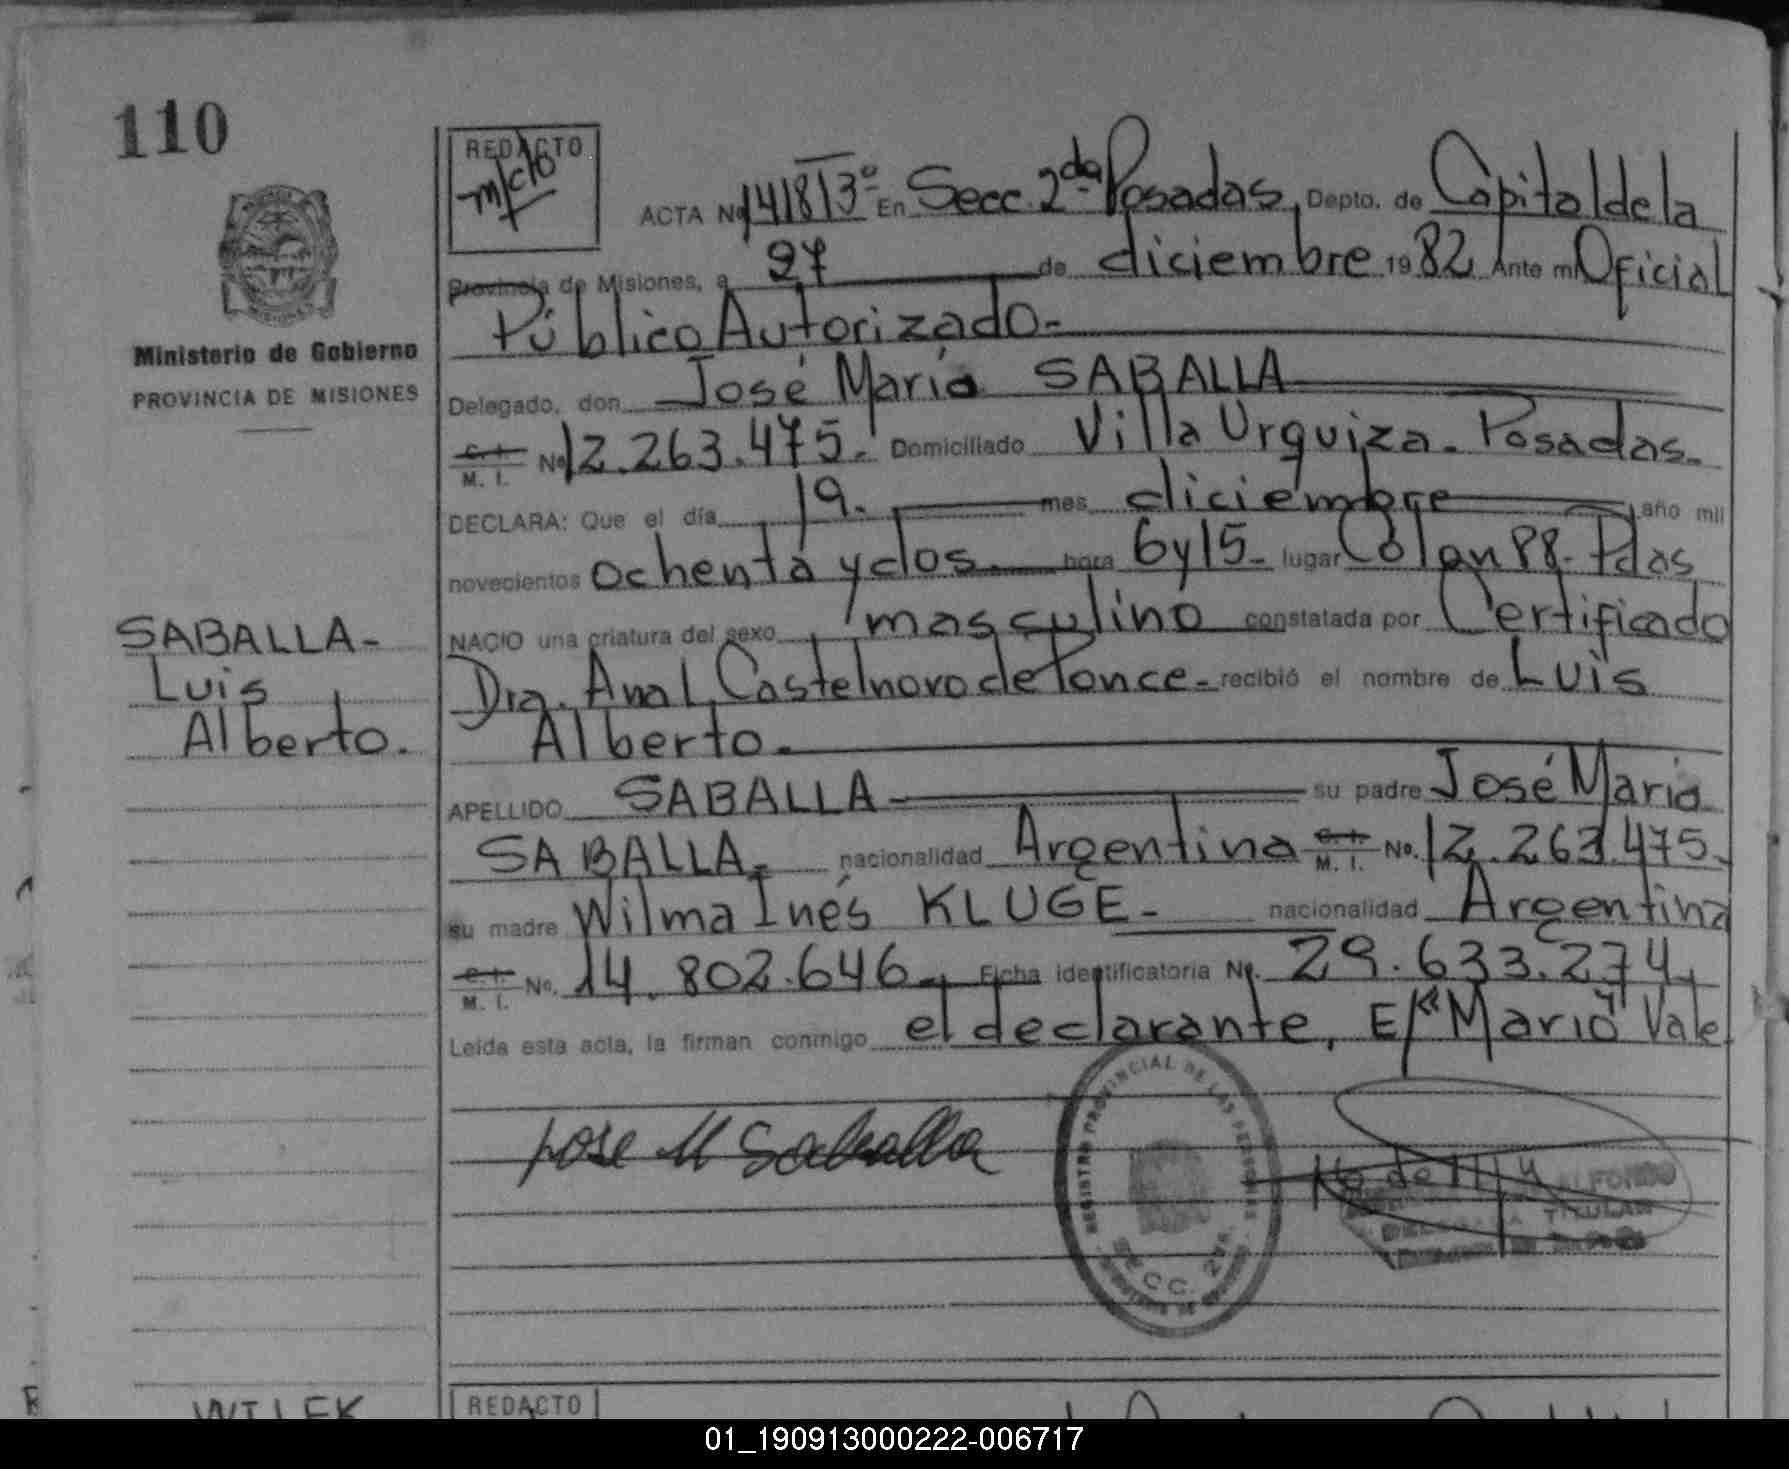 110
REDACTO
ACTA Nº 141813º En Secc. 2da Posadas, Depto. de Capital de la
Provincia de Misiones, a 27 de diciembre 1982 Ante mi Oficial
Público Autorizado-
Ministerio de Gobierno
PROVINCIA DE MISIONES
Delegado, don José Mario SABALLA
C. I. M. I. Nº 12.263.475.- Domiciliado Villa Urquiza- Posadas-
DECLARA: Que el día 19. mes diciembre año mil
novecientos ochenta y dos hora 6 y 15- lugar Colon 88- Pdas
NACIO una criatura del sexo masculino constatada por Certificado
Dra. Ana L. Castelnovo de Ponce- recibió el nombre de Luis
Alberto.
SABALLA-
Luis
Alberto.
APELLIDO SABALLA su padre José Mario
SABALLA- nacionalidad Argentina C. I. M. I. Nº. 12.263.475-
su madre Wilma Inés KLUGE- nacionalidad Argentina
C. I. M. I. Nº. 14.802.646- Ficha identificatoria Nº. 29.633.274
Leida esta acta, la firman conmigo el declarante, E/"Mario" Vale
Jose M Saballa
REGISTRO PROVINCIAL DE LAS PERSONAS
SECC. 2da.
ALFONSO
TITULAR
WILEK
REDACTO
01_190913000222-006717